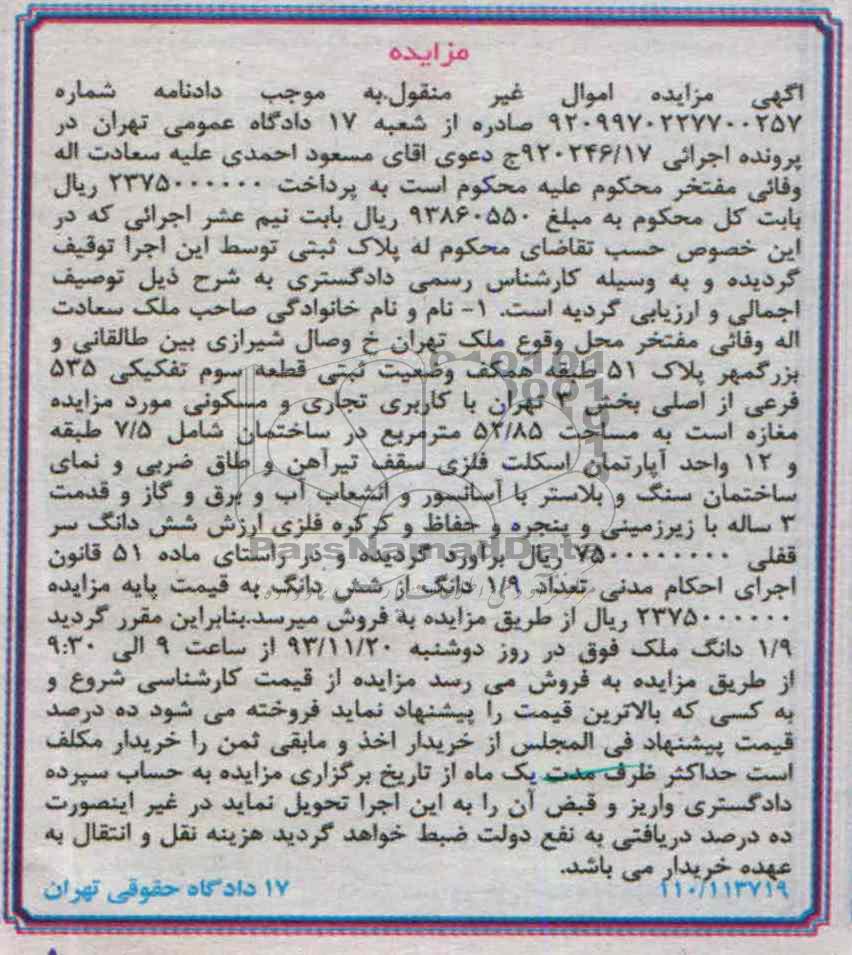 مزایده
آگهی مزایده اموال غیر منقول.به موجب دادنامه شماره
۹۲۰۹۹۷۰۲۲۷۷۰۰۲۵۷ صادره از شعبه ۱۷ دادگاه عمومی تهران در
پرونده اجرائی ۹۲۰۲۴۶/۱۷ج دعوی اقای مسعود احمدی علیه سعادت اله
وفائی مفتخر محکوم علیه محکوم است به پرداخت ۲۳۷۵۰۰۰۰۰۰ ریال
بابت کل محکوم به مبلغ ۹۳۸۶۰۵۵۰ ریال بابت نیم عشر اجرائی که در
این خصوص حسب تقاضای محکوم له پلاک ثبتی توسط این اجرا توقیف
گردیده و به وسیله کارشناس رسمی دادگستری به شرح ذیل توصیف
اجمالی و ارزیابی گردیه است. ۱- نام و نام خانوادگی صاحب ملک سعادت
اله وفائی مفتخر محل وقوع ملک تهران خ وصال شیرازی بین طالقانی و
بزرگمهر پلاک ۵۱ طبقه همکف وضعیت ثبتی قطعه سوم تفکیکی ۵۳۵
فرعی از اصلی بخش ۳ تهران با کاربری تجاری و مسکونی مورد مزایده
مغازه است به مساحت ۵۲/۸۵ مترمربع در ساختمان شامل ۷/۵ طبقه
و ۱۲ واحد آپارتمان اسکلت فلزی سقف تیرآهن و طاق ضربی و نمای
ساختمان سنگ و بلاستر با آسانسور و انشعاب آب و برق و گاز و قدمت
۳ ساله با زیرزمینی و پنجره و حفاظ و کرکره فلزی ارزش شش دانگ سر
قفلی ۷۵۰۰۰۰۰۰۰۰ ریال برآورد گردیده و در راستای ماده ۵۱ قانون
اجرای احکام مدنی تعداد ۱/۹ دانگ از شش دانگ به قیمت پایه مزایده
۲۳۷۵۰۰۰۰۰۰ ریال از طریق مزایده به فروش میرسد.بنابراین مقرر گردید
۱/۹ دانگ ملک فوق در روز دوشنبه ۹۳/۱۱/۲۰ از ساعت ۹ الی ۹:۳۰
از طریق مزایده به فروش می رسد مزایده از قیمت کارشناسی شروع و
به کسی که بالاترین قیمت را پیشنهاد نماید فروخته می شود ده درصد
قیمت پیشنهاد فی المجلس از خریدار اخذ و مابقی ثمن را خریدار مکلف
است حداکثر ظرف مدت یک ماه از تاریخ برگزاری مزایده به حساب سپرده
دادگستری واریز و قبض آن را به این اجرا تحویل نماید در غیر اینصورت
ده درصد دریافتی به نفع دولت ضبط خواهد گردید هزینه نقل و انتقال به
عهده خریدار می باشد.
۱۱۰/۱۱۳۷۱۹ ۱۷ دادگاه حقوقی تهران
ParsNamadData